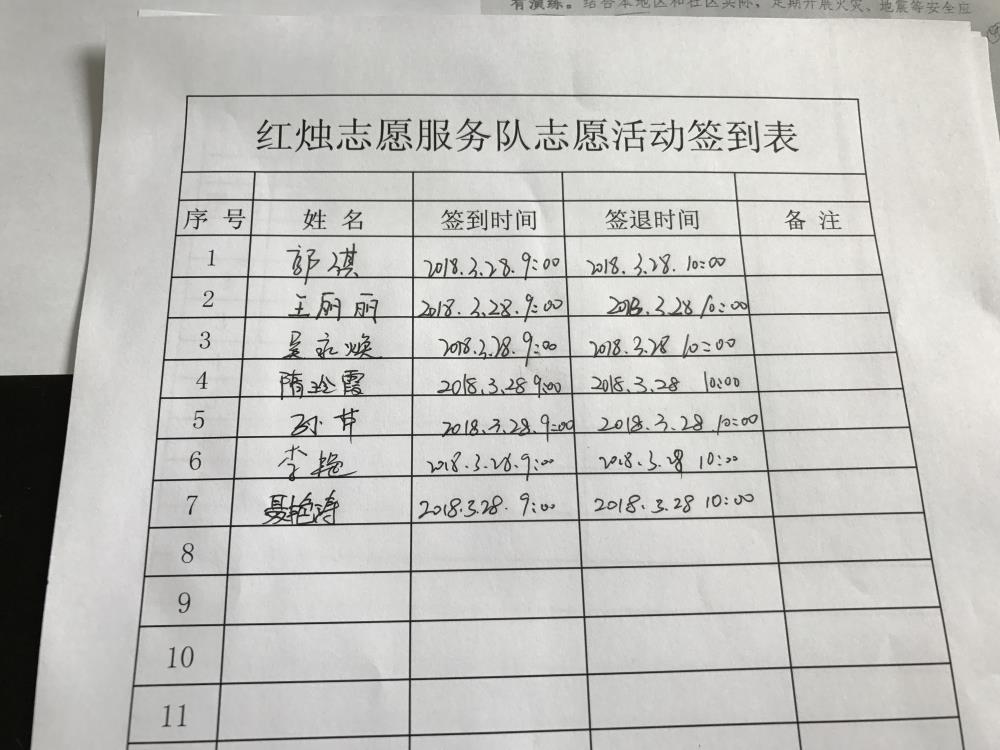 有演练。结合本地区和社区实际，定期开展火灾、地震等安全应
红烛志愿服务队志愿活动签到表
序 号 姓 名 签到时间 签退时间 备 注
1 郭祺 2018.3.28.9:00 2018.3.28.10:00
2 王丽丽 2018.3.28.9:00 2018.3.28 10:00
3 吴永焕 2018.3.28.9:00 2018.3.28 10:00
4 隋玲霞 2018.3.28 9:00 2018.3.28 10:00
5 孙芹 2018.3.28.9:00 2018.3.28.10:00
6 李艳 2018.3.28.9:00 2018.3.28 10:00
7 聂艳涛 2018.3.28.9:00 2018.3.28 10:00
8
9
10
11